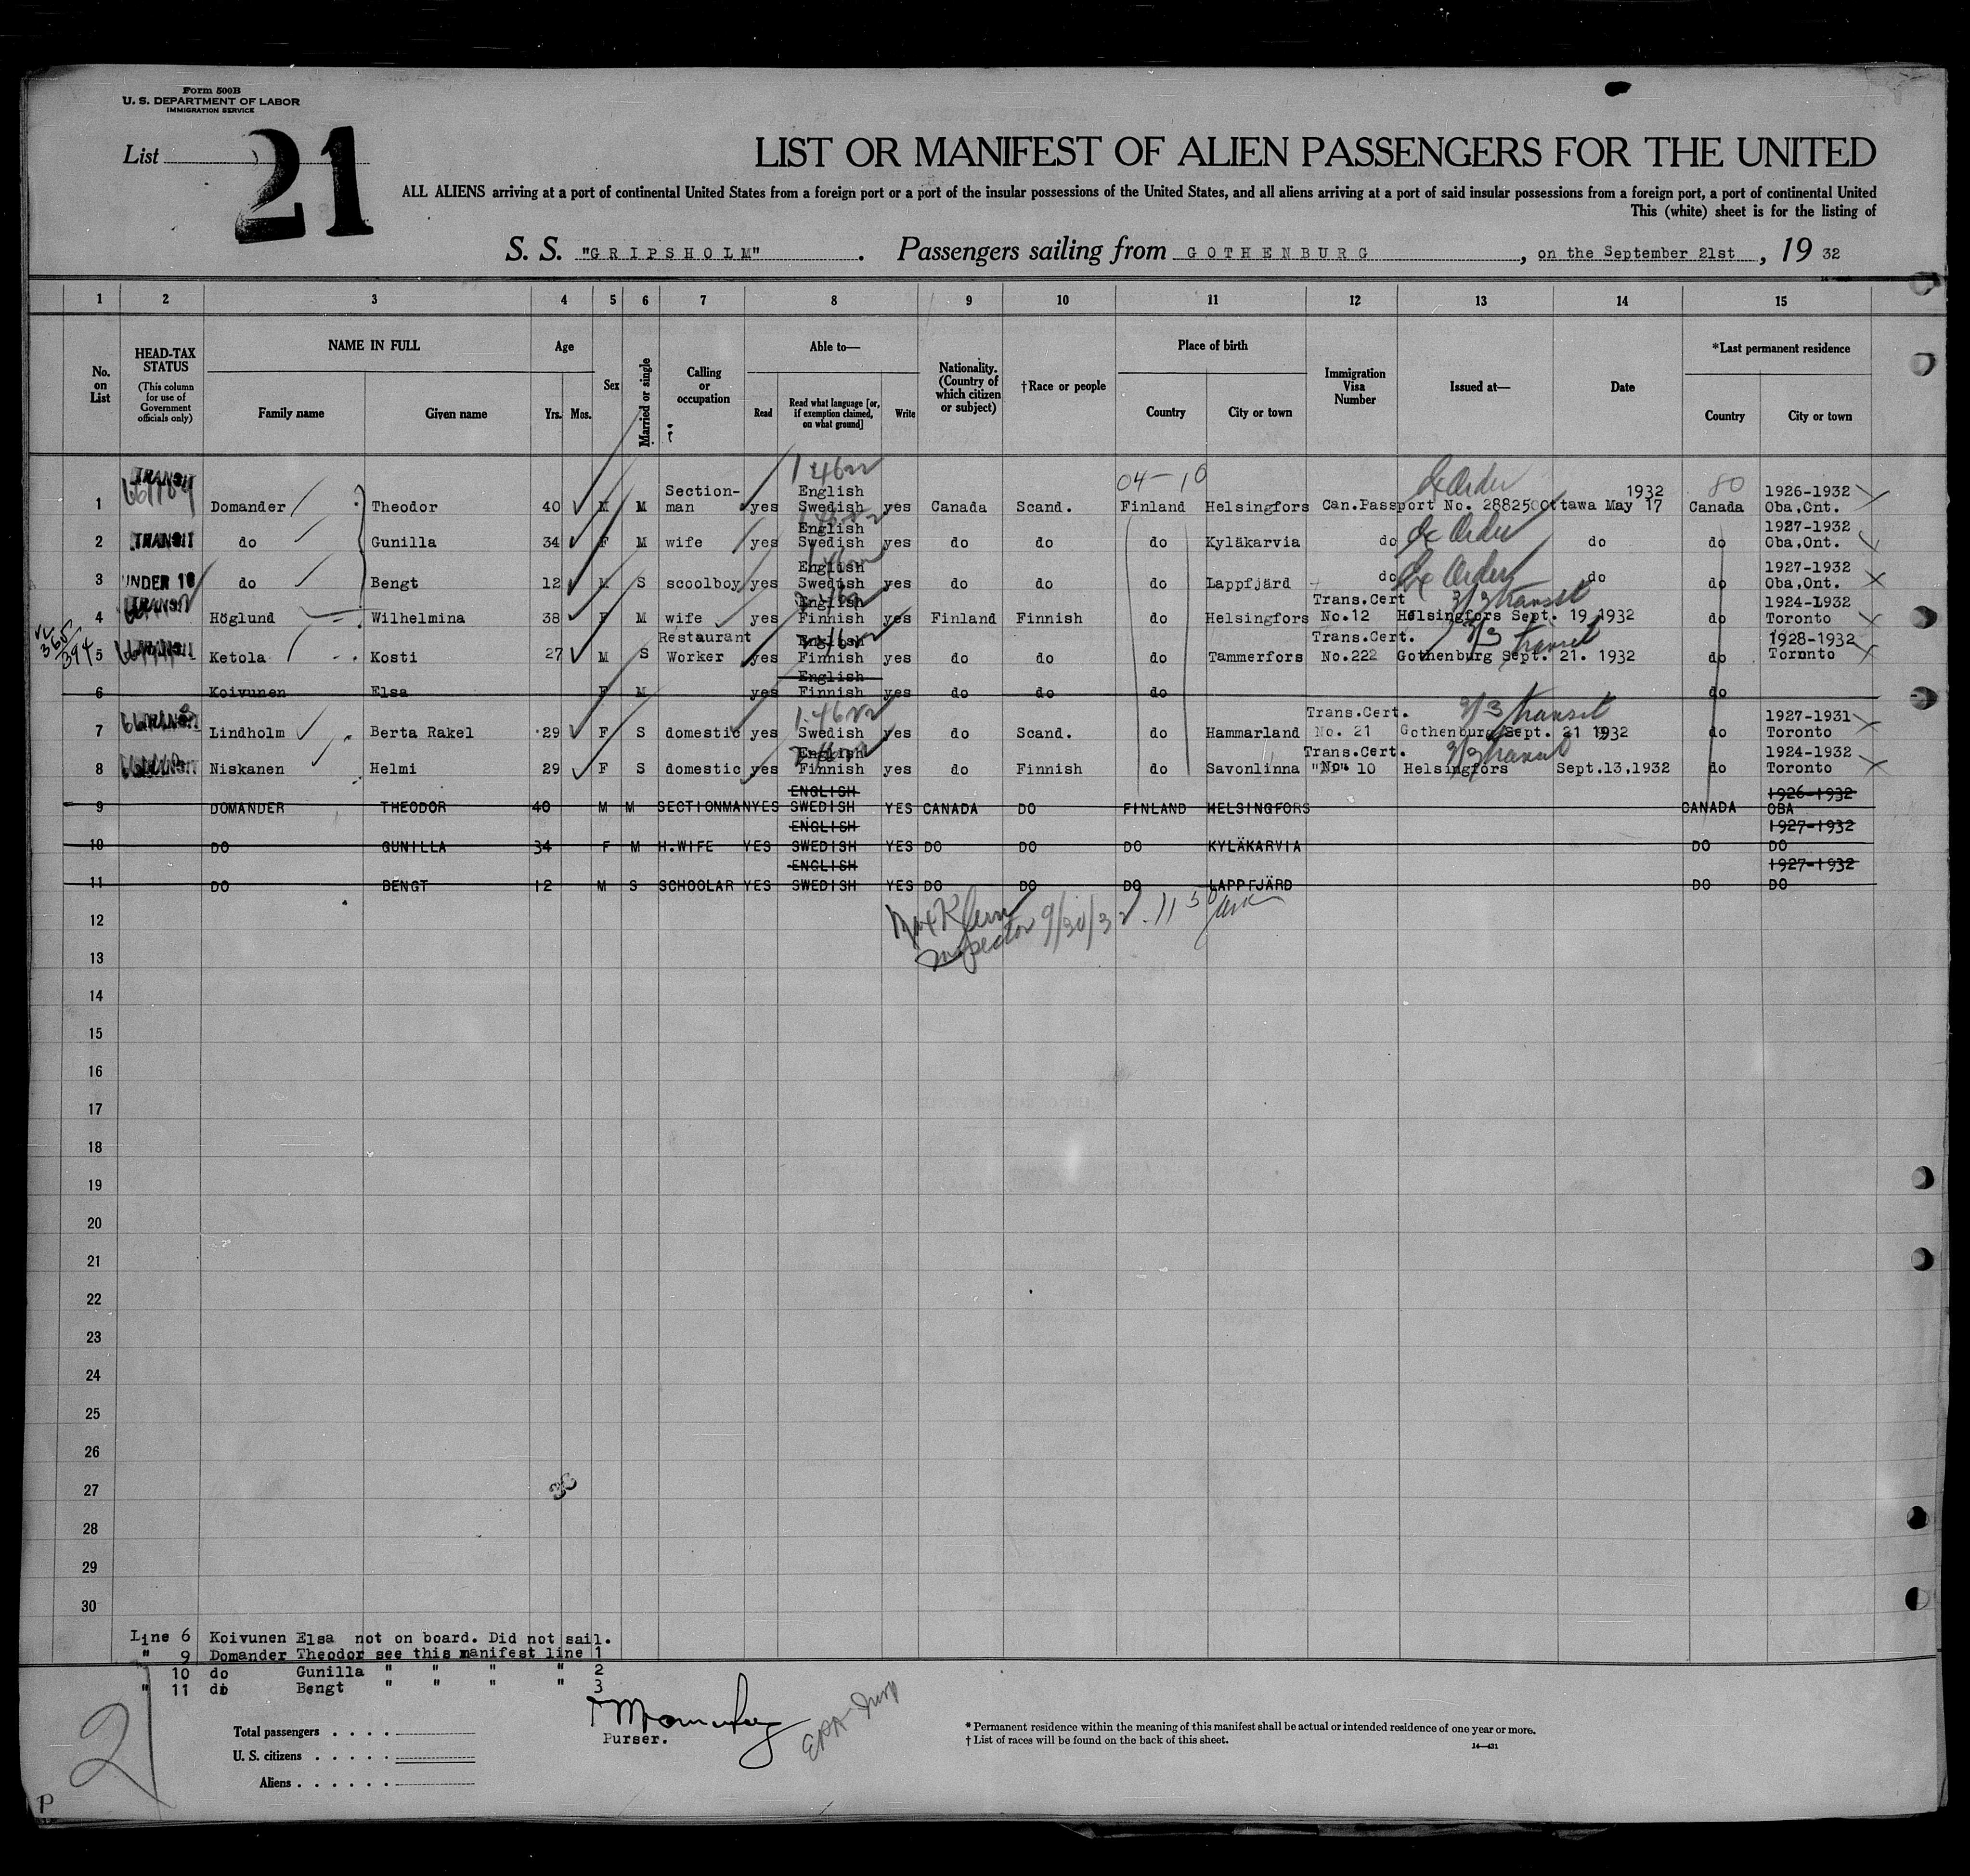 Form 500B
U. S. DEPARTMENT OF LABOR
IMMIGRATION SERVICE
List 21
LIST OR MANIFEST OF ALIEN PASSENGERS FOR THE UNITED
ALL ALIENS arriving at a port of continental United States from a foreign port or a port of the insular possessions of the United States, and all aliens arriving at a port of said insular possessions from a foreign port, a port of continental United
This (white) sheet is for the listing of
S. S. "GRIPSHOLM". Passengers sailing from GOTHENBURG, on the September 21st, 19 32
1 2 3 4 5 6 7 8 9 10 11 12 13 14 15
No. on List
HEAD-TAX STATUS (This column for use of Government officials only)
NAME IN FULL
Family name Given name
Age
Yrs. Mos.
Sex
Married or single
Calling or occupation
Able to—
Read Read what language [or, if exemption claimed, on what ground] Write
Nationality. (Country of which citizen or subject)
†Race or people
Place of birth
Country City or town
Immigration Visa Number
Issued at—
Date
*Last permanent residence
Country City or town
04-10
1 TRANSIT Domander Theodor 40 M M Section-man yes English Swedish yes Canada Scand. Finland Helsingfors Can.Passport No. 288250 Ottawa May 17 1932 Canada 1926-1932 Oba,Ont.
80
2 TRANSIT do Gunilla 34 F M wife yes English Swedish yes do do do Kyläkarvia do do do 1927-1932 Oba,Ont.
3 UNDER 16 do Bengt 12 M S scoolboy yes English Swedish yes do do do Lappfjärd do do do 1927-1932 Oba,Ont.
4 TRANSIT Höglund Wilhelmina 38 F M wife yes English Finnish yes Finland Finnish do Helsingfors Trans.Cert No.12 Helsingfors Sept. 19 1932 do 1924-1932 Toronto
5 Ketola Kosti 27 M S Restaurant Worker yes English Finnish yes do do do Tammerfors Trans.Cert. No.222 Gothenburg Sept. 21. 1932 do 1928-1932 Toronto
6 Koivunen Elsa F M yes English Finnish yes do do do do
7 Lindholm Berta Rakel 29 F S domestic yes Swedish yes do Scand. do Hammarland Trans.Cert. No. 21 Gothenburg Sept. 21 1932 do 1927-1931 Toronto
8 Niskanen Helmi 29 F S domestic yes English Finnish yes do Finnish do Savonlinna Trans.Cert. "No" 10 Helsingfors Sept.13,1932 do 1924-1932 Toronto
9 DOMANDER THEODOR 40 M M SECTIONMAN YES ENGLISH SWEDISH YES CANADA DO FINLAND HELSINGFORS CANADA 1926-1932 OBA
10 DO GUNILLA 34 F M H.WIFE YES ENGLISH SWEDISH YES DO DO DO KYLÄKARVIA DO 1927-1932 DO
11 DO BENGT 12 M S SCHOOLAR YES ENGLISH SWEDISH YES DO DO DO LAPPFJÄRD DO 1927-1932 DO
Max Klein
Inspector 9/30/32
12
13
14
15
16
17
18
19
20
21
22
23
24
25
26
27
28
29
30
Line 6 Koivunen Elsa not on board. Did not sail.
" 9 Domander Theodor see this manifest line 1
10 do Gunilla " " " " 2
" 11 do Bengt " " " " 3
Purser.
Total passengers
U. S. citizens
Aliens
* Permanent residence within the meaning of this manifest shall be actual or intended residence of one year or more.
† List of races will be found on the back of this sheet.
14—431
21
P